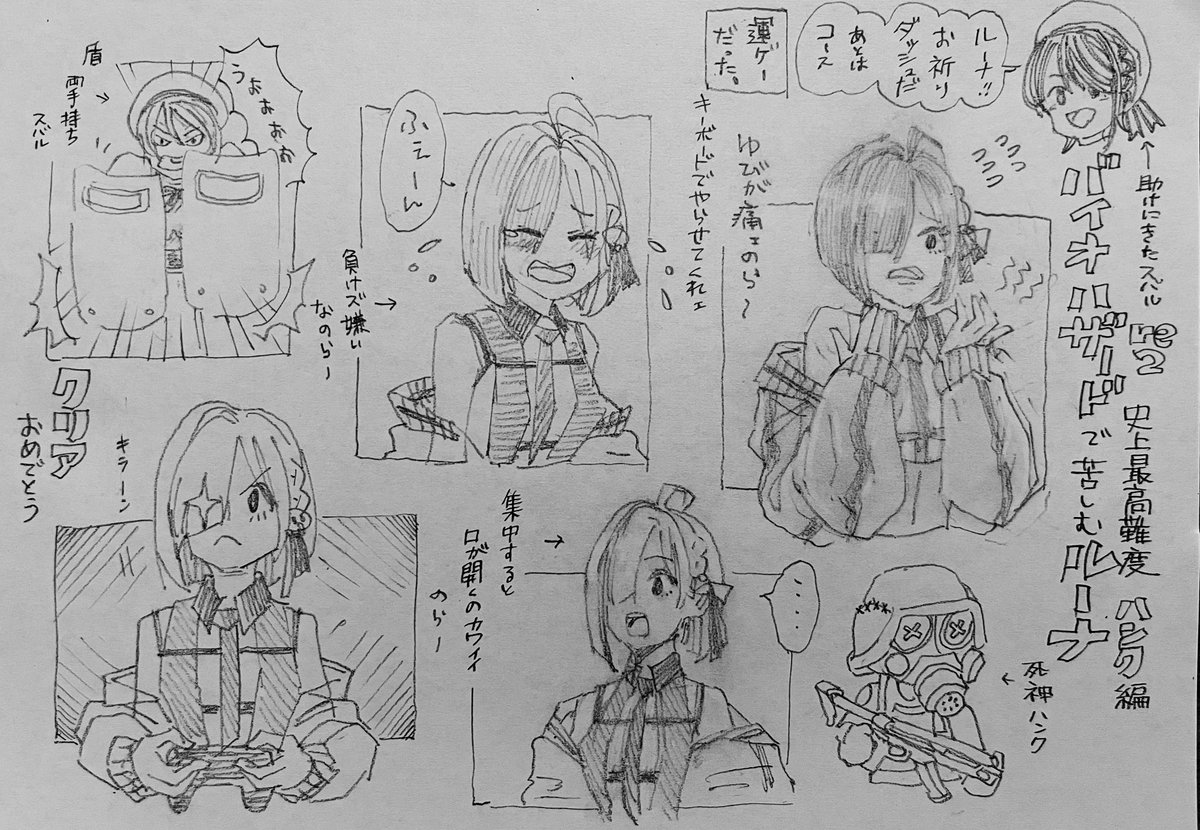 バイオハザードで苦しむルーナ
re2
史上最高難度 ハンク編
←助けにきたスバル
ルーナ!!
お祈り
ダッシュだ
あとは
コース
運ゲー
だった。
キーボードでやらせてくれェ
ゆびが痛ェのら〜
ふぇーん
負けズ嫌い
なのら〜
うぉぉぉぉ
盾
両手持ち
スバル
クリア
おめでとう
キラーン
集中すると
口が開くのカワイイ
のら〜
・・・
←死神ハンク